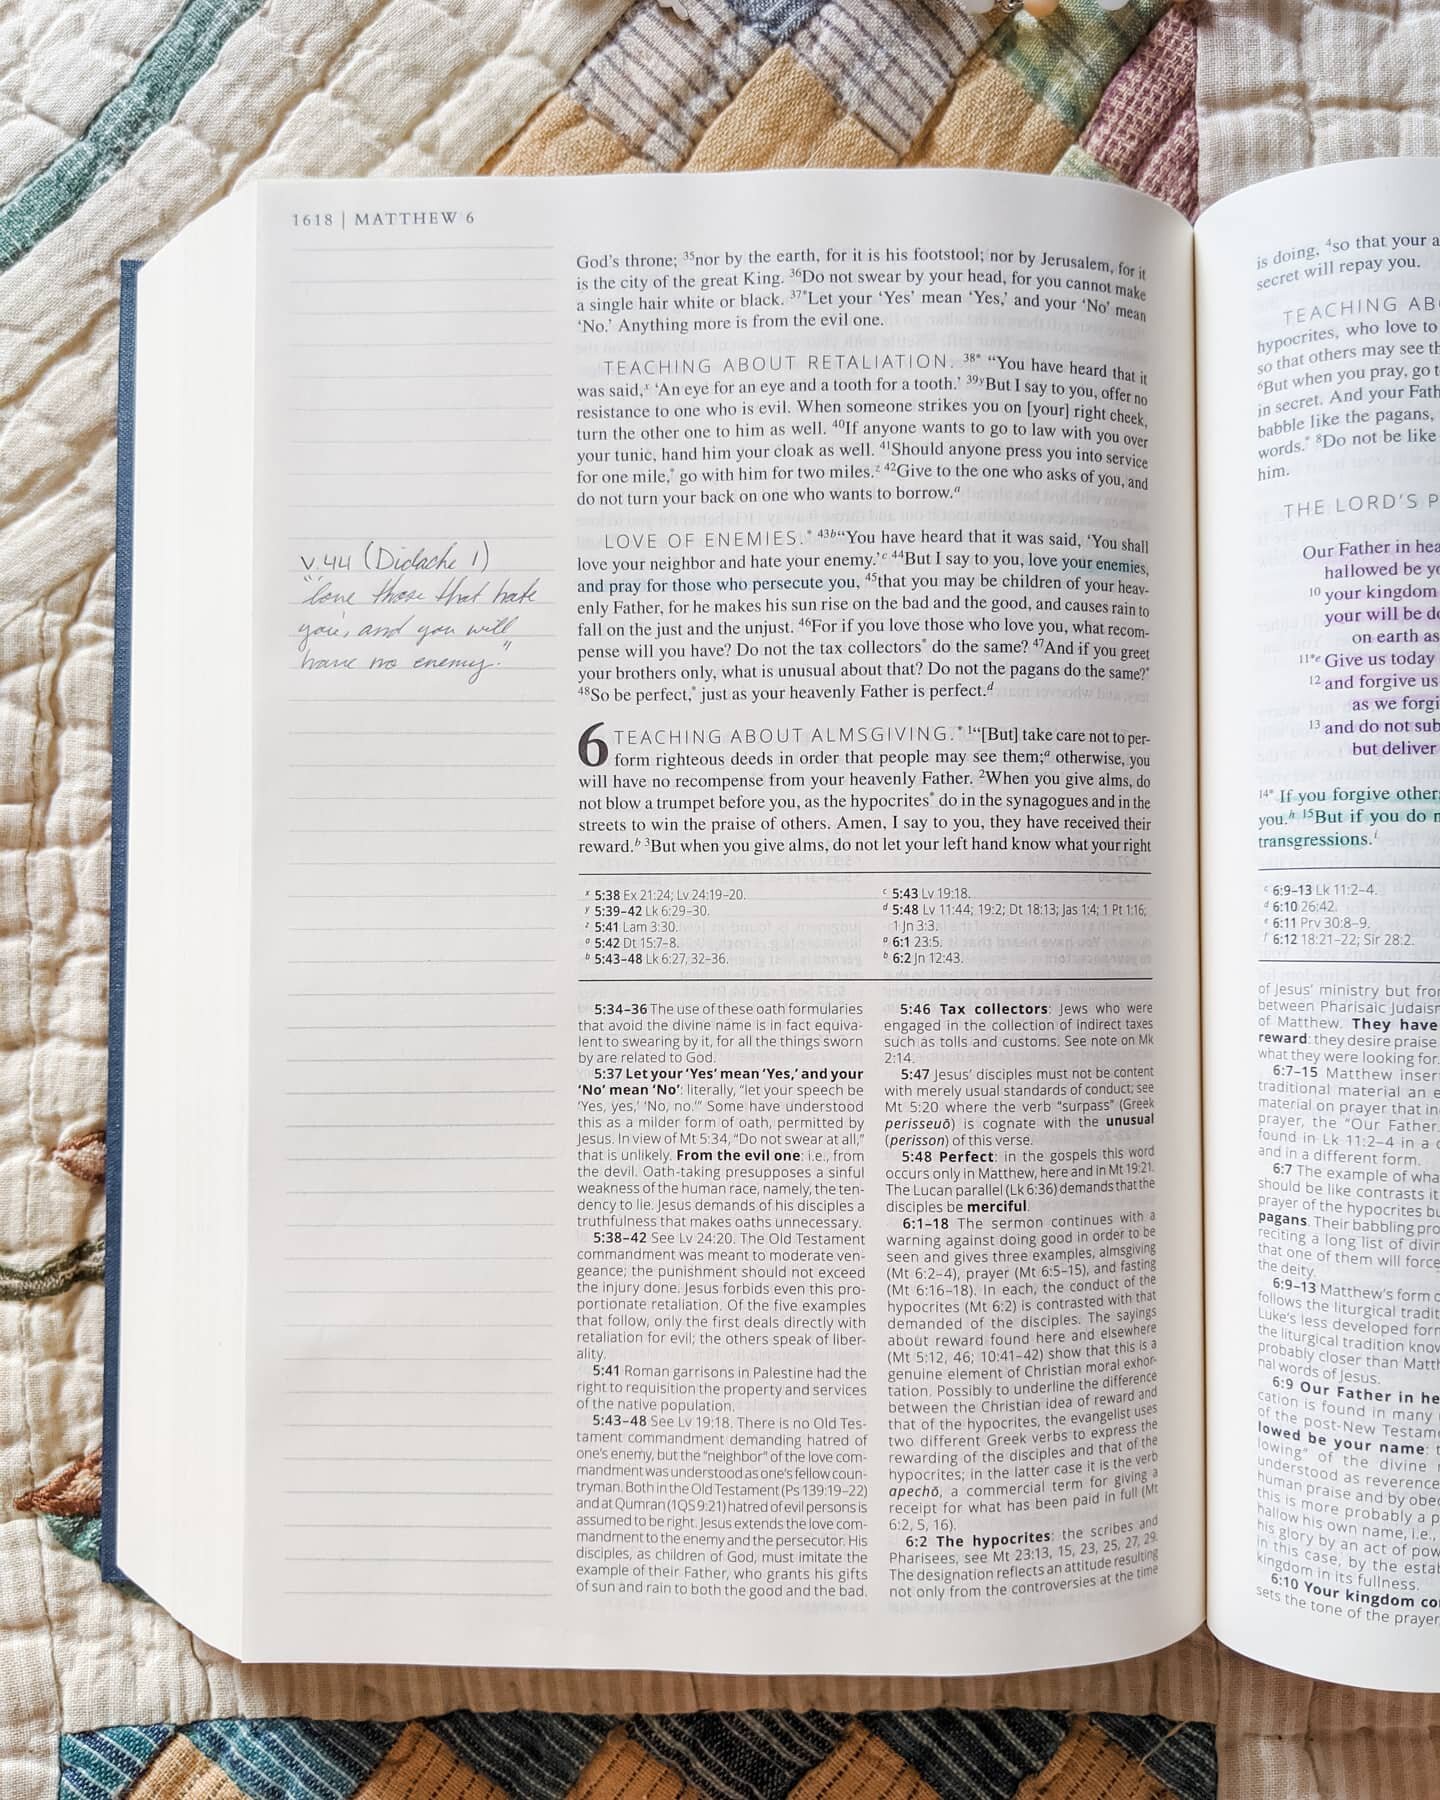 1618 | MATTHEW 6
v.44 (Didache 1)
"love those that hate
you, and you will
have no enemy."
God's throne; 35nor by the earth, for it is his footstool; nor by Jerusalem, for it
is the city of the great King. 36Do not swear by your head, for you cannot make
a single hair white or black. 37*Let your 'Yes' mean 'Yes,' and your 'No' mean
'No.' Anything more is from the evil one.
TEACHING ABOUT RETALIATION. 38* "You have heard that it
was said,x 'An eye for an eye and a tooth for a tooth.' 39yBut I say to you, offer no
resistance to one who is evil. When someone strikes you on [your] right cheek,
turn the other one to him as well. 40If anyone wants to go to law with you over
your tunic, hand him your cloak as well. 41Should anyone press you into service
for one mile,* go with him for two miles.z 42Give to the one who asks of you, and
do not turn your back on one who wants to borrow.a
LOVE OF ENEMIES.* 43b"You have heard that it was said, 'You shall
love your neighbor and hate your enemy.'c 44But I say to you, love your enemies,
and pray for those who persecute you, 45that you may be children of your heav-
enly Father, for he makes his sun rise on the bad and the good, and causes rain to
fall on the just and the unjust. 46For if you love those who love you, what recom-
pense will you have? Do not the tax collectors* do the same? 47And if you greet
your brothers only, what is unusual about that? Do not the pagans do the same?*
48So be perfect,* just as your heavenly Father is perfect.d
6 TEACHING ABOUT ALMSGIVING.* 1"[But] take care not to per-
form righteous deeds in order that people may see them;a otherwise, you
will have no recompense from your heavenly Father. 2When you give alms, do
not blow a trumpet before you, as the hypocrites* do in the synagogues and in the
streets to win the praise of others. Amen, I say to you, they have received their
reward.b 3But when you give alms, do not let your left hand know what your right
x 5:38 Ex 21:24; Lv 24:19–20.
y 5:39–42 Lk 6:29–30.
z 5:41 Lam 3:30.
a 5:42 Dt 15:7–8.
b 5:43–48 Lk 6:27, 32–36.
c 5:43 Lv 19:18.
d 5:48 Lv 11:44; 19:2; Dt 18:13; Jas 1:4; 1 Pt 1:16;
1 Jn 3:3.
a 6:1 23:5.
b 6:2 Jn 12:43.
5:34–36 The use of these oath formularies
that avoid the divine name is in fact equiva-
lent to swearing by it, for all the things sworn
by are related to God.
5:37 Let your 'Yes' mean 'Yes,' and your
'No' mean 'No': literally, "let your speech be
'Yes, yes,' 'No, no.'" Some have understood
this as a milder form of oath, permitted by
Jesus. In view of Mt 5:34, "Do not swear at all,"
that is unlikely. From the evil one: i.e., from
the devil. Oath-taking presupposes a sinful
weakness of the human race, namely, the ten-
dency to lie. Jesus demands of his disciples a
truthfulness that makes oaths unnecessary.
5:38–42 See Lv 24:20. The Old Testament
commandment was meant to moderate ven-
geance; the punishment should not exceed
the injury done. Jesus forbids even this pro-
portionate retaliation. Of the five examples
that follow, only the first deals directly with
retaliation for evil; the others speak of liber-
ality.
5:41 Roman garrisons in Palestine had the
right to requisition the property and services
of the native population.
5:43–48 See Lv 19:18. There is no Old Tes-
tament commandment demanding hatred of
one's enemy, but the "neighbor" of the love com-
mandment was understood as one's fellow coun-
tryman. Both in the Old Testament (Ps 139:19–22)
and at Qumran (1QS 9:21) hatred of evil persons is
assumed to be right. Jesus extends the love com-
mandment to the enemy and the persecutor. His
disciples, as children of God, must imitate the
example of their Father, who grants his gifts
of sun and rain to both the good and the bad.
5:46 Tax collectors: Jews who were
engaged in the collection of indirect taxes
such as tolls and customs. See note on Mk
2:14.
5:47 Jesus' disciples must not be content
with merely usual standards of conduct; see
Mt 5:20 where the verb "surpass" (Greek
perisseuō) is cognate with the unusual
(perisson) of this verse.
5:48 Perfect: in the gospels this word
occurs only in Matthew, here and in Mt 19:21.
The Lucan parallel (Lk 6:36) demands that the
disciples be merciful.
6:1–18 The sermon continues with a
warning against doing good in order to be
seen and gives three examples, almsgiving
(Mt 6:2–4), prayer (Mt 6:5–15), and fasting
(Mt 6:16–18). In each, the conduct of the
hypocrites (Mt 6:2) is contrasted with that
demanded of the disciples. The sayings
about reward found here and elsewhere
(Mt 5:12, 46; 10:41–42) show that this is a
genuine element of Christian moral exhor-
tation. Possibly to underline the difference
between the Christian idea of reward and
that of the hypocrites, the evangelist uses
two different Greek verbs to express the
rewarding of the disciples and that of the
hypocrites; in the latter case it is the verb
apechō, a commercial term for giving a
receipt for what has been paid in full (Mt
6:2, 5, 16).
6:2 The hypocrites: the scribes and
Pharisees, see Mt 23:13, 15, 23, 25, 27, 29.
The designation reflects an attitude resulting
not only from the controversies at the time
is doing, 4so that your a
secret will repay you.
TEACHING AB
hypocrites, who love to
so that others may see th
6But when you pray, go t
in secret. And your Fath
babble like the pagans,
words.* 8Do not be like
him.
THE LORD'S P
Our Father in hea
hallowed be yo
10 your kingdom
your will be do
on earth as
11*e Give us today
12 and forgive us
as we forgi
13 and do not sub
but deliver
14* If you forgive others
you.h 15But if you do n
transgressions.i
c 6:9–13 Lk 11:2–4.
d 6:10 26:42.
e 6:11 Prv 30:8–9.
f 6:12 18:21–22; Sir 28:2.
of Jesus' ministry but fro
between Pharisaic Judaism
of Matthew. They have
reward: they desire praise
what they were looking for.
6:7–15 Matthew inser
traditional material an e
material on prayer that in
prayer, the "Our Father.
found in Lk 11:2–4 in a
and in a different form.
6:7 The example of wha
should be like contrasts it
prayer of the hypocrites bu
pagans. Their babbling pro
reciting a long list of divin
that one of them will force
the deity.
6:9–13 Matthew's form o
follows the liturgical tradit
Luke's less developed form
the liturgical tradition know
probably closer than Matth
nal words of Jesus.
6:9 Our Father in he
cation is found in many
of the post-New Testame
lowed be your name: t
lowing" of the divine
understood as reverence
human praise and by obed
this is more probably a p
hallow his own name, i.e.,
his glory by an act of pow
in this case, by the estab
kingdom in its fullness.
6:10 Your kingdom co
sets the tone of the prayer,